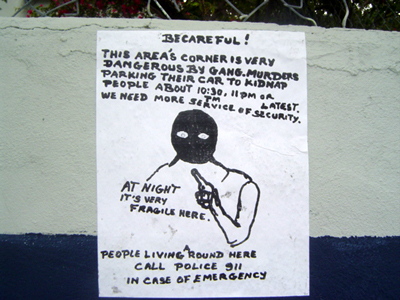 BECAREFUL!
THIS AREA'S CORNER IS VERY
DANGEROUS BY GANG. MURDERS
PARKING THEIR CAR TO KIDNAP
PEOPLE ABOUT 10:30, 11 PM OR
PM LATEST.
WE NEED MORE SERVICE OF SECURITY.
AT NIGHT
IT'S VERY
FRAGILE HERE.
PEOPLE LIVING ROUND HERE
CALL POLICE 911
IN CASE OF EMERGENCY